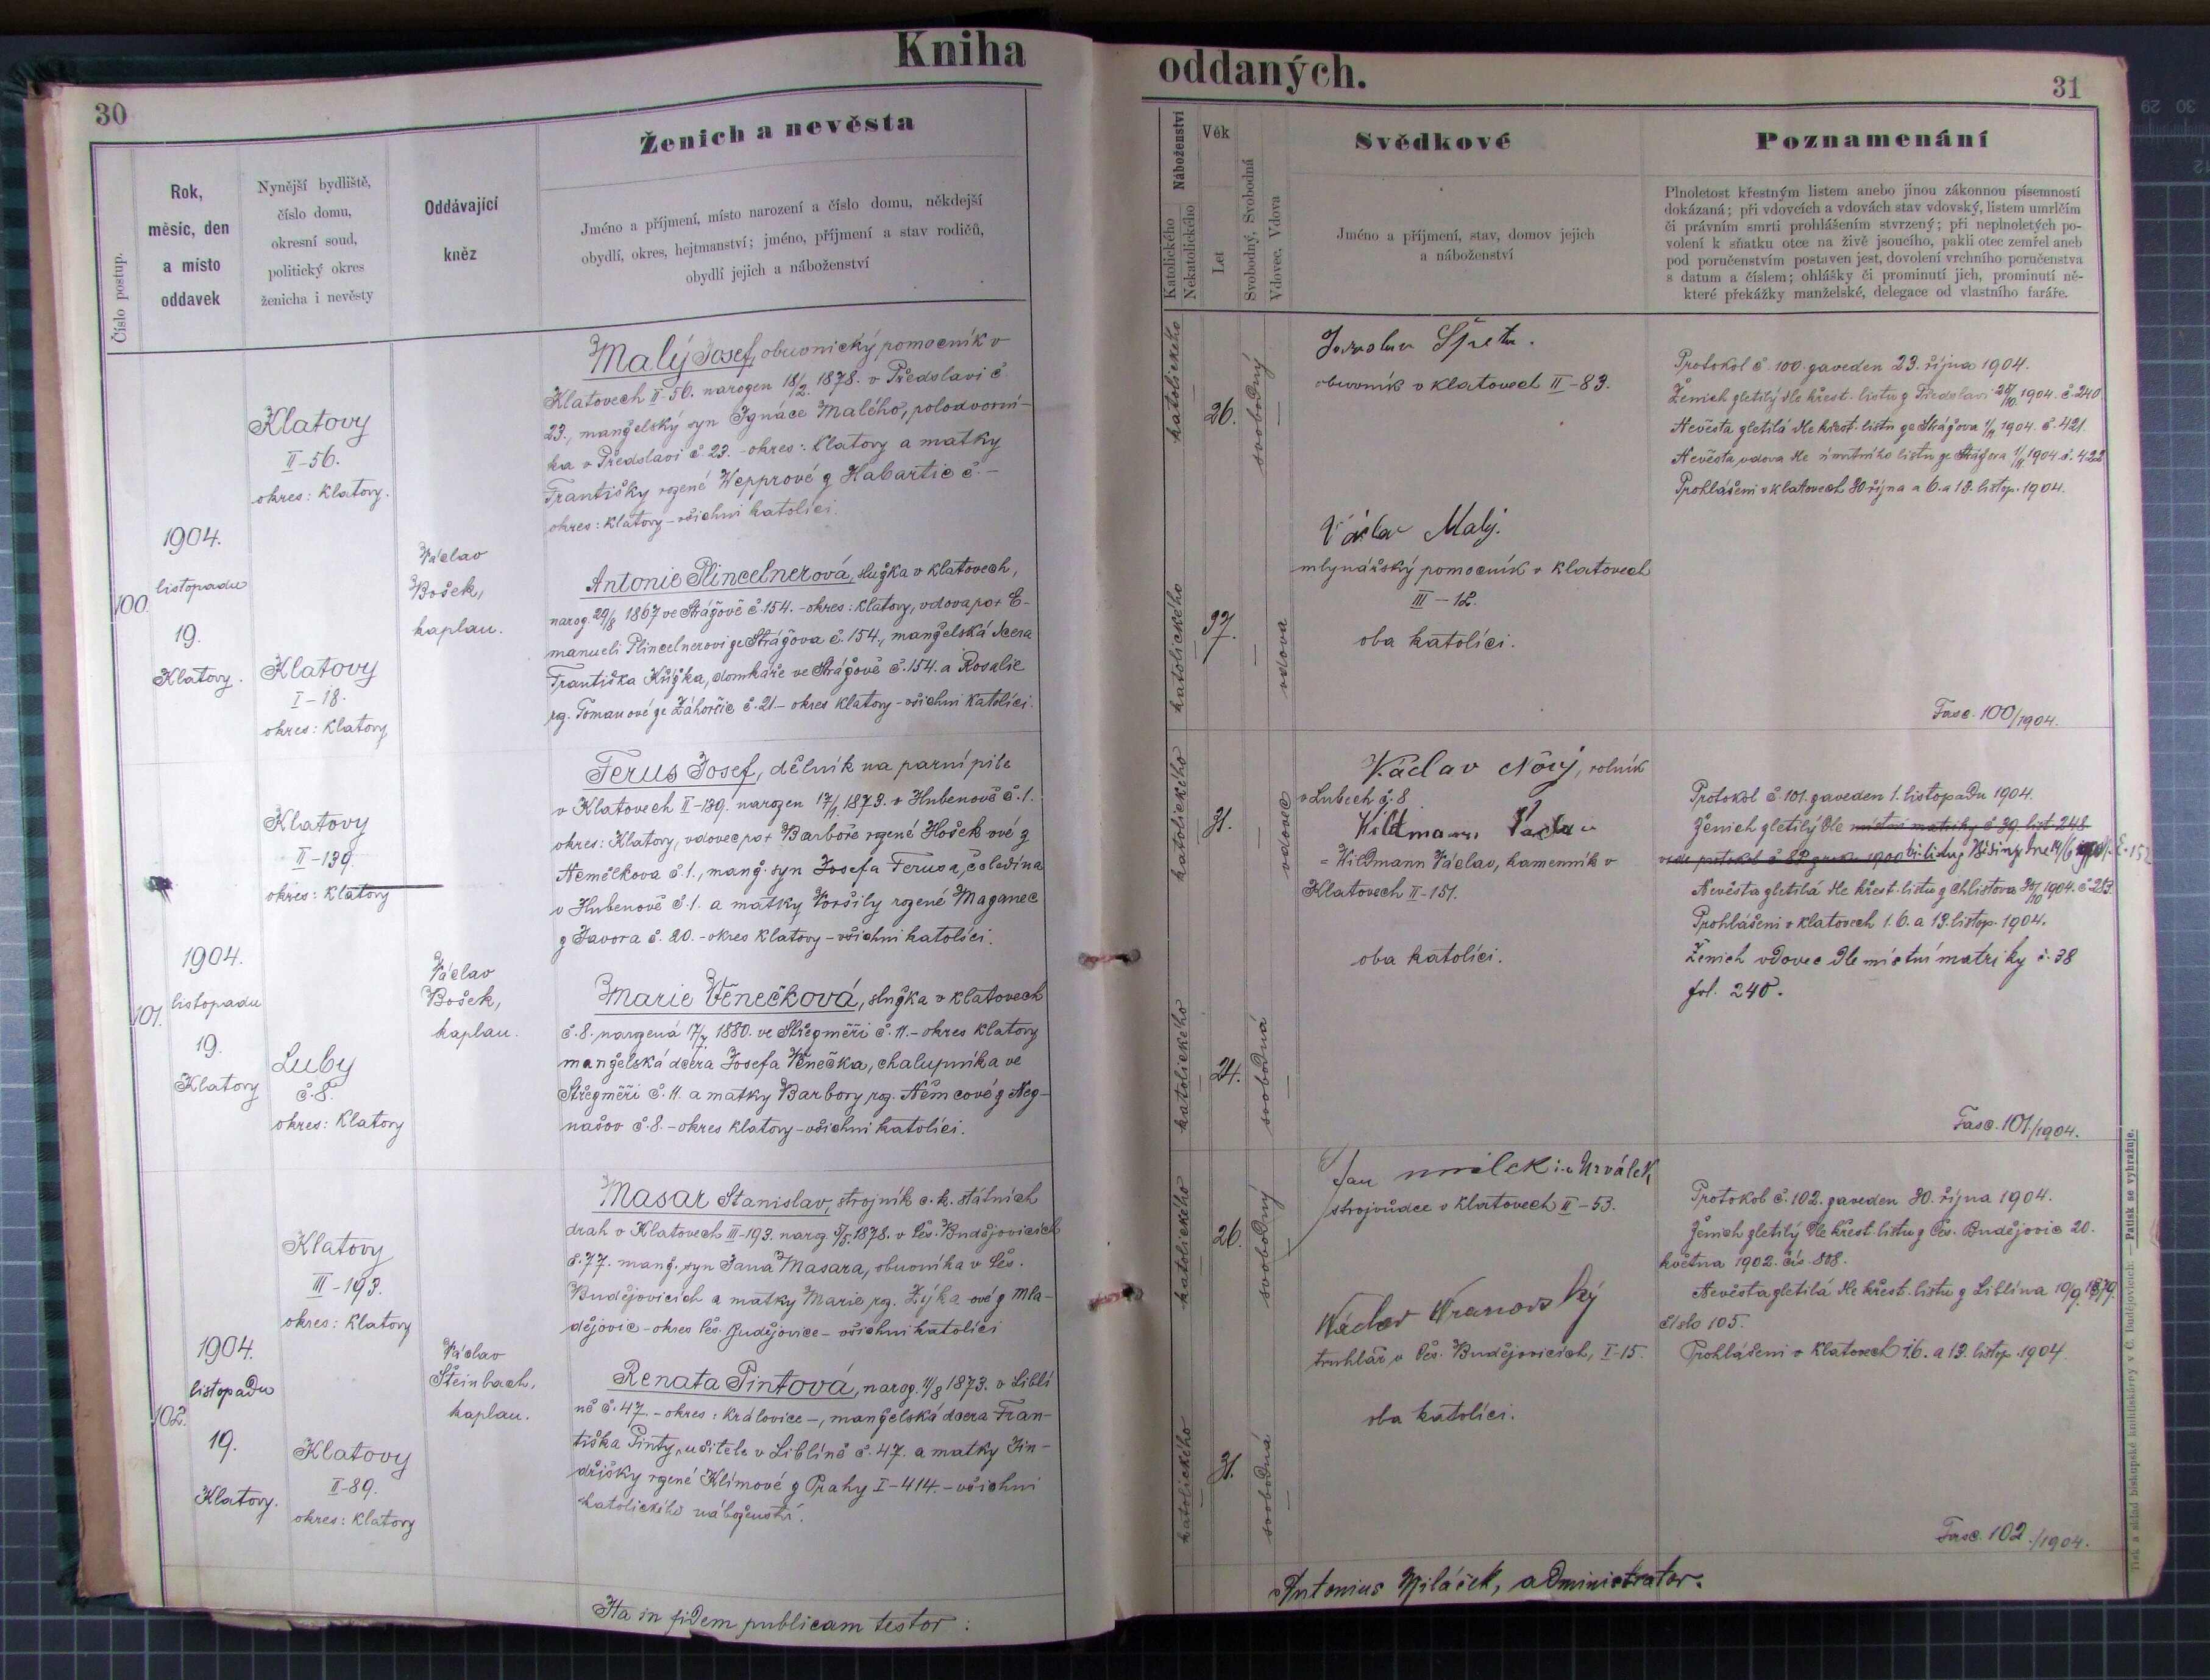 Kniha
30
Ženich a nevěsta
Číslo postup.
Rok,
měsíc, den
a místo
oddavek
Nynější bydliště,
číslo domu,
okresní soud,
politický okres
ženicha i nevěsty
Oddávající
kněz
Jméno a příjmení, místo narození a číslo domu, někdejší
obydlí, okres, hejtmanství; jméno, příjmení a stav rodičů,
obydlí jejich a náboženství
100.
1904.
listopadu
19.
Klatovy.
Klatovy
II-56.
okres: Klatovy.
Klatovy
I-18.
okres: Klatovy
Václav
Bošek,
kaplan.
Malý Josef, obuvnický pomocník v
Klatovech II-56. narozen 18/2. 1878. v Předslavi č.
23., manželský syn Ignáce Malého, polodvorní-
ka v Předslavi č. 23. - okres: Klatovy a matky
Františky rozené Wepprové z Habartic č. -
okres: Klatovy - všichni katolíci.
Antonie Plincelnerová, služka v Klatovech,
naroz. 29/8 1867 ve Strážově č. 154. - okres: Klatovy, vdova po + E-
manueli Plincelnerovi ze Strážova č. 154., manželská dcera
Františka Křížka, domkáře ve Strážově č. 154. a Rosalie
rz. Tomanové ze Záhorčic č. 21 - okres Klatovy - všichni katolíci.
101.
1904.
listopadu
19.
Klatovy
Klatovy
II-139.
okres: Klatovy
Luby
č. 8.
okres: Klatovy
Václav
Bošek,
kaplan.
Ferus Josef, dělník na parní pile
v Klatovech II-139. narozen 17/1 1873. v Hubenově č. 1.
okres: Klatovy, vdovec po + Barboře rozené Hošekové z
Němčlkova č. 1., manž. syn Josefa Ferusa, čeledína
v Hubenově č. 1. a matky Voršily rozené Maganec
z Javora č. 20. - okres Klatovy - všichni katolíci.
Marie Věnečková, služka v Klatovech
č. 8. narozená 17/7. 1880. ve Střezměři č. 11. - okres Klatovy
manželská dcera Josefa Věnečka, chalupníka ve
Střezměři č. 11. a matky Barbory, rz. Němcové z Nez-
našov č. 8. - okres Klatovy - všichni katolíci.
102.
1904.
listopadu
19.
Klatovy.
Klatovy
III-193.
okres: Klatovy
Klatovy
II-89.
okres: Klatovy
Václav
Steinbach,
kaplan.
Masar Stanislav, strojník c. k. státních
drah v Klatovech III-193. naroz. 5/5. 1878. v Čes. Budějovicích
č. 77. manž. syn Jana Masara, obuvníka v Čes.
Budějovicích a matky Marie, rz. Zýkaové z Mla-
dějovic - okres Čes. Budějovice - všichni katolíci
Renata Pintová, naroz. 11/8 1873. v Liblí
ně č. 47. - okres: Královice -, manželská dcera Fran-
tiška Pinty, učitele v Liblíně č. 47. a matky Jin-
dřišky rozené Klímové z Prahy I-414. - všichni
katolického náboženství.
Ita in fidem publicam testor:
oddaných.
31
Náboženství
Katolického
Nekatolického
Věk
Let
Svobodný, Svobodná
Vdovec, Vdova
Svědkové
Jméno a příjmení, stav, domov jejich
a náboženství
Poznamenání
Plnoletost křestným listem anebo jinou zákonnou písemností
dokázaná; při vdovcích a vdovách stav vdovský, listem umrlčím
či právním smrti prohlášením stvrzený; při neplnoletých po-
volení k sňatku otce na živě jsoucího, pakli otec zemřel aneb
pod poručenstvím postaven jest, dovolení vrchního poručenstva
s datum a číslem; ohlášky či prominutí jich, prominutí ně-
které překážky manželské, delegace od vlastního faráře.
katolického
26.
svobodný
Jaroslav
obuvník v Klatovech II-83.
Protokol č. 100. zaveden 23. října 1904.
Ženich zletilý dle křest. listu z Předslavi 26/10. 1904. č. 240.
Nevěsta zletilá dle křest. listu ze Strážova 1/11 1904. č. 421.
Nevěsta vdova dle úmrtního listu ze Strážova 1/11 1904. č. 422
Prohlášeni v Klatovech 30 října a 6. a 13. listop. 1904.
katolického
37.
vdova
Václav Malý.
mlynářský pomocník v Klatovech
III-12.
oba katolíci.
Fasc. 100/1904.
katolického
31.
vdovec
Václav Nový, rolník
v Lubech č. 8
Wildmann Václav
= Wildmann Václav, kamenník v
Klatovech II-151.
oba katolíci.
Protokol č. 101. zaveden 1. listopadu 1904.
Ženich zletilý dle místní matriky č. 39. list 248
Nevěsta zletilá dle křest. listu z Chlistova 30/10 1904. č. 213.
Prohlášeni v Klatovech 1. 6. a 13. listop. 1904.
Ženich vdovec dle místní matriky č. 38
fol. 240.
katolického
24.
svobodná
Fasc. 101/1904.
katolického
26.
svobodný
Jan Urválek
strojvůdce v Klatovech II-53.
Václav Vranovský
truhlář v Čes. Budějovicích, I-15.
oba katolíci.
Protokol č. 102. zaveden 30. října 1904.
Ženich zletilý dle křest. listu z Čes. Budějovic 20.
května 1902. čís. 808.
Nevěsta zletilá dle křest. listu z Liblína 10/9. 1879.
číslo 105.
Prohlášeni v Klatovech 1. 6. a 13. listop. 1904.
katolického
31.
svobodná
Fasc. 102./1904.
Antonius Hilášek, administrator.
Tisk a sklad biskupské knihtiskárny v Č. Budějovicích. — Patisk se vyhražuje.